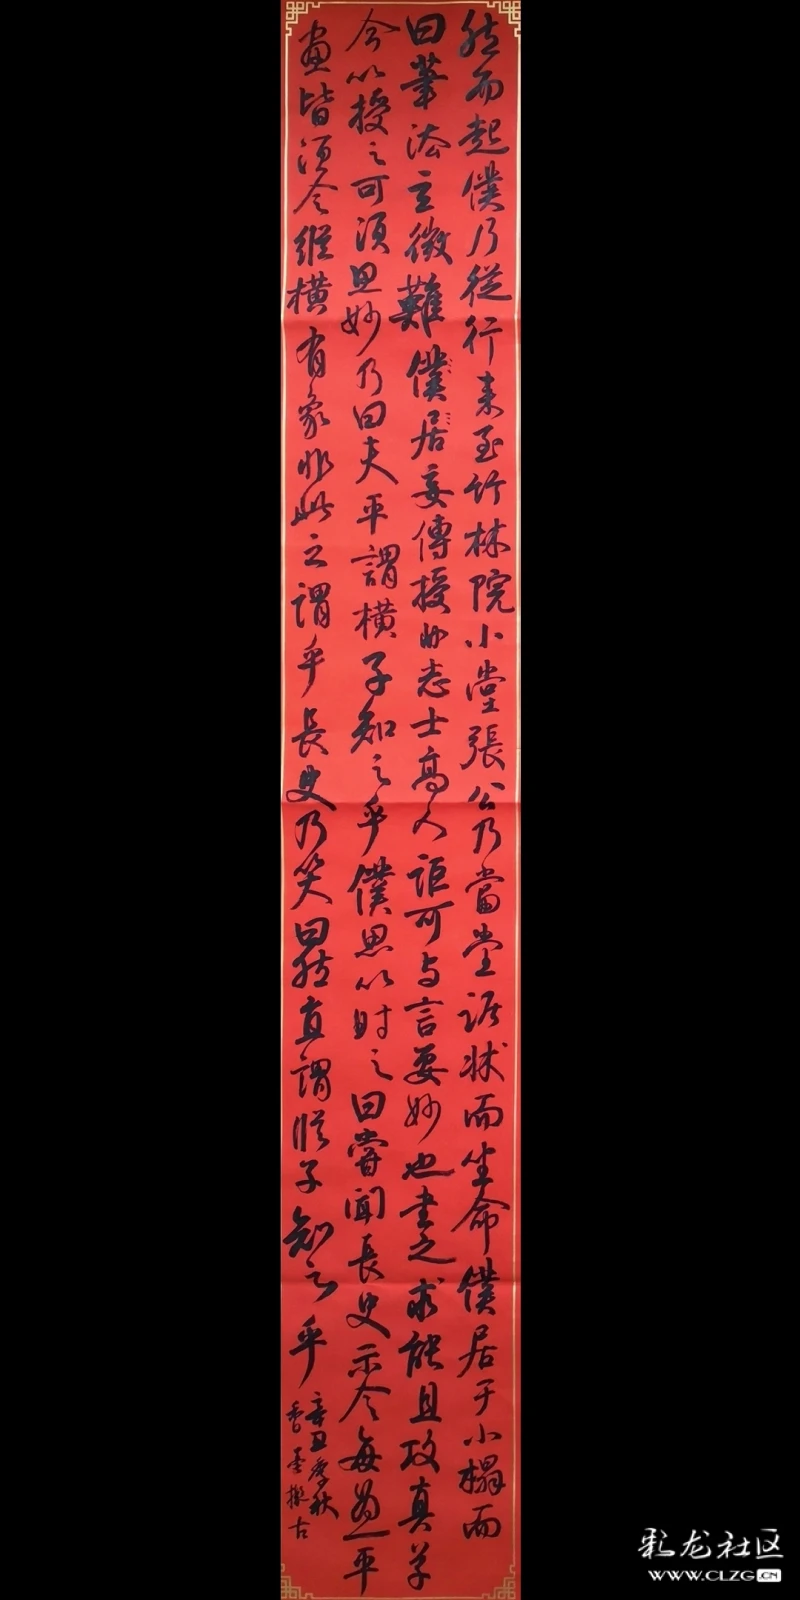 然而起僕乃從行來至竹林院小堂張公乃當堂踞牀而坐命僕居于小榻而
曰筆法玄微難僕居妄傳授非志士高人詎可与言要妙也書之求能且攻真草
今以授之可須思妙乃曰夫平謂橫子知之乎僕思以對之曰嘗聞長史示令每為一平
畫皆須令縱橫有象非此之謂乎長史乃笑曰然直謂縱子知之乎
辛丑季秋
雲擬古
彩龙社区
WWW.CLZG.CN